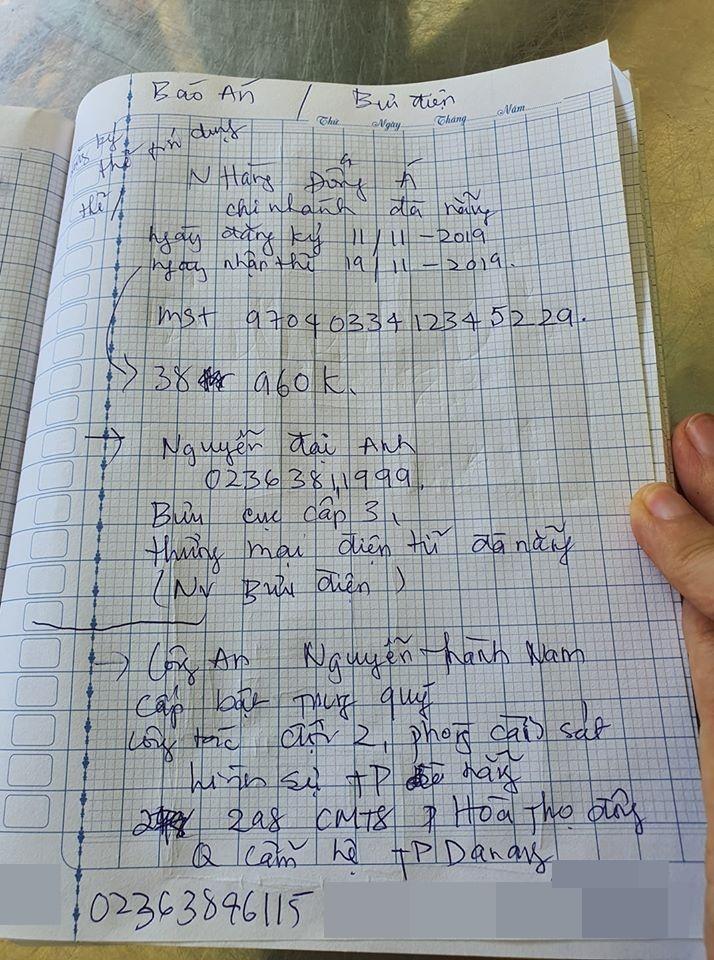 Báo Án / Bưu điện
Thứ Ngày Tháng Năm
ký thẻ tín dụng
thẻ /
N Hàng Đông Á
chi nhánh đà nẵng
ngày đăng ký 11/11-2019
ngày nhận thẻ 19/11-2019.
mst 9704033412345229.
→ 38 960K.
→ Nguyễn đại Anh
02363811999.
Bưu cục cấp 3,
thương mại điện tử đà nẵng
(NV Bưu điện)
→ Công An Nguyễn thành Nam
cấp bật trung quý
công tác đội 2, phòng cãi sát
hình sự tP nẵng
298 CMT8 P Hoà thọ đông
Q cẩm lệ tP Danang
02363846115